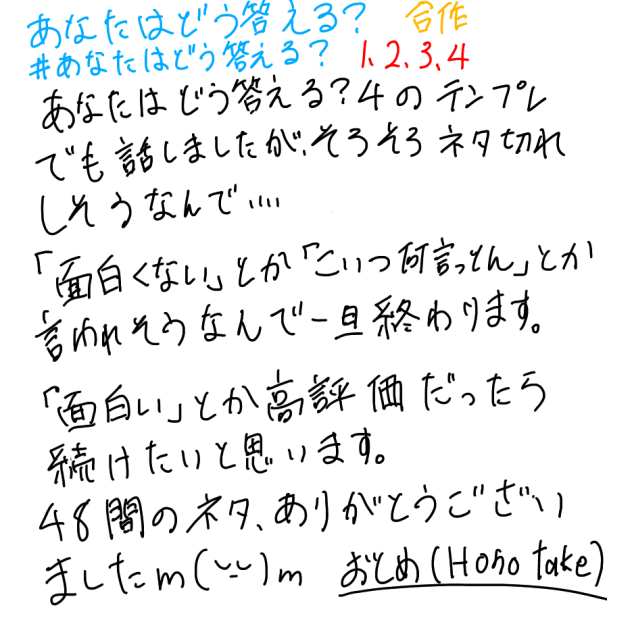 あなたはどう答える? 合作
#あなたはどう答える? 1,2,3,4
あなたはどう答える?4のテンプレ
でも話しましたが、そろそろネタ切れ
しそうなんで....
「面白くない」とか「こいつ何言っとん」とか
言われそうなんで一旦終わります。
「面白い」とか高評価だったら
続けたいと思います。
48間のネタ、ありがとうござい
ましたm(__)m おとめ(Hono take)